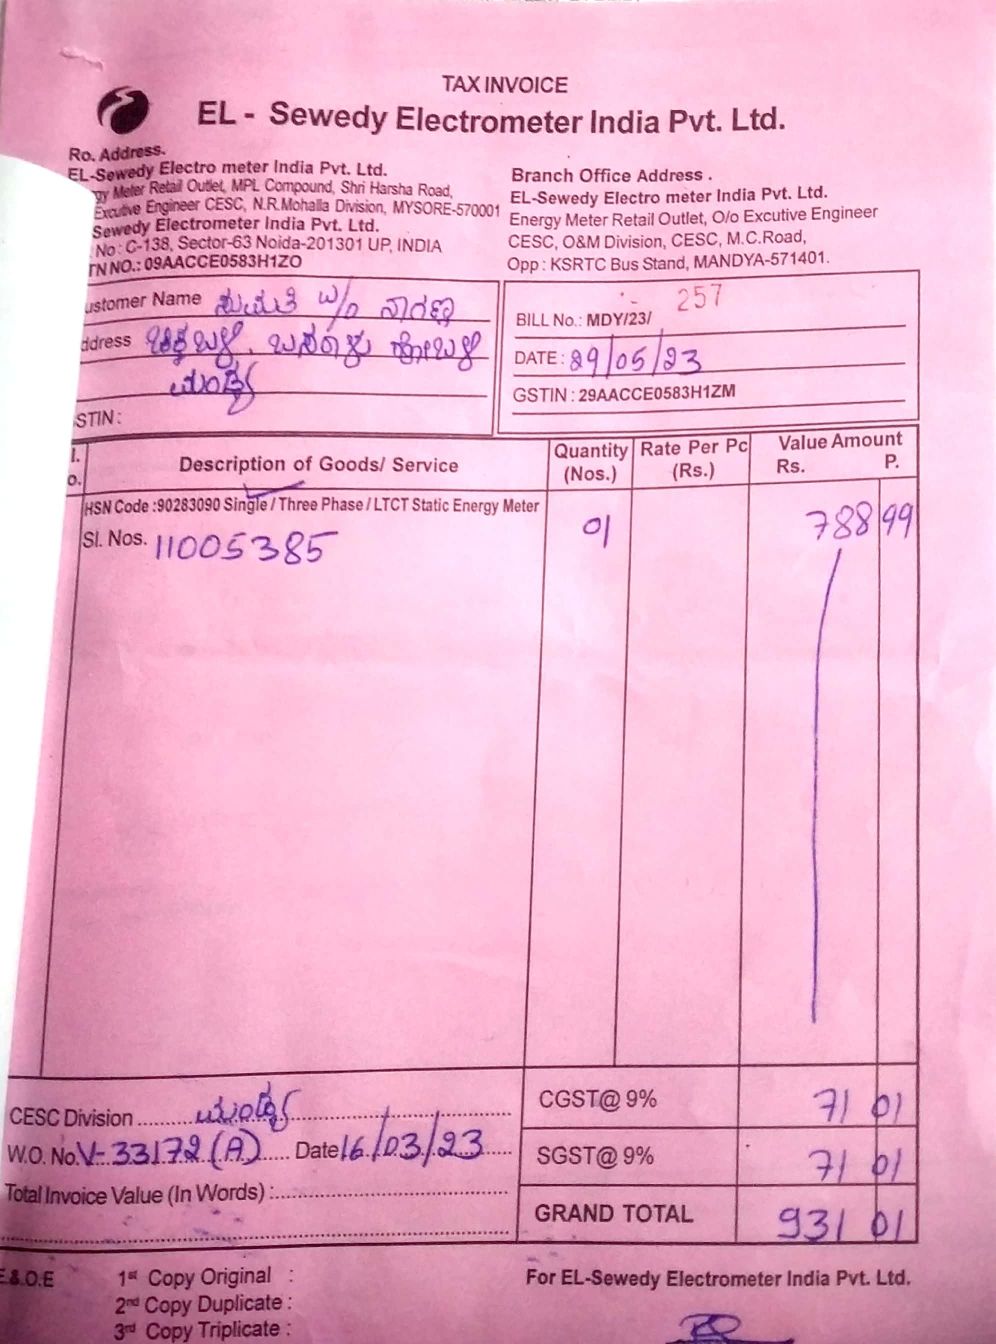 TAX INVOICE
EL - Sewedy Electrometer India Pvt. Ltd.
Ro. Address.
EL-Sewedy Electro meter India Pvt. Ltd.
gy Meter Retail Outlet, MPL Compound, Shri Harsha Road,
Excutive Engineer CESC, N.R.Mohalla Division, MYSORE-570001
Sewedy Electrometer India Pvt. Ltd.
No : C-138, Sector-63 Noida-201301 UP, INDIA
TN NO.: 09AACCE0583H1ZO
Branch Office Address .
EL-Sewedy Electro meter India Pvt. Ltd.
Energy Meter Retail Outlet, O/o Excutive Engineer
CESC, O&M Division, CESC, M.C.Road,
Opp : KSRTC Bus Stand, MANDYA-571401.
ustomer Name W/o
ddress
ಮಂಡ್ಯ
STIN :
BILL No.: MDY/23/ 257
DATE : 29/05/23
GSTIN : 29AACCE0583H1ZM
l. Description of Goods/ Service Quantity (Nos.) Rate Per Pc (Rs.) Value Amount
o. Rs. P.
HSN Code :90283090 Single / Three Phase / LTCT Static Energy Meter 01 788 99
Sl. Nos. 11005385
CESC Division ಮಂಡ್ಯ
W.O. No. V-33172 (A) Date 16/03/23
Total Invoice Value (In Words) :
CGST@ 9% 71 01
SGST@ 9% 71 01
GRAND TOTAL 931 01
E.&.O.E 1st Copy Original :
2nd Copy Duplicate :
3rd Copy Triplicate :
For EL-Sewedy Electrometer India Pvt. Ltd.